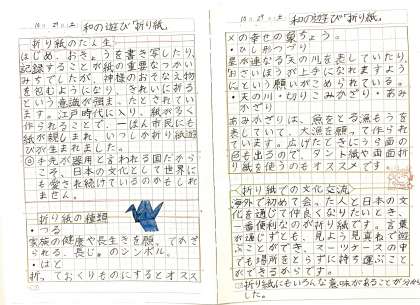 10.29.土 和の遊び"折り紙"
折り紙のたん生
はじめ、おきょうを書き写したり、
記録することが紙の重要なつかい
みちでしたが、神様のおそなえ物
を包むようになり、きれいに折る
という意識が強まったとされてい
ます。江戸時代に入り、紙が多く
作られることで、一ぱん市民にも
紙が親しまれ、いつしか折り紙遊
びが生まれました。
手先が器用と言われる国だから
こそ、日本の文化として世界に
も愛され続けているのかもしれ
ません。
折り紙の種類
・つる
家族の健康や長生きを願ってかざ
られる、長じゅのシンボル。
・はと
折っておくりものにするとオスス
10.29.土 和の遊び"折り紙"
メの幸せの象ちょう。
・ひし形つづり
星が連なる天の川を表していたり、
おさいほうが上手になれますよう
にという願いがこめられている。
・天の川・切りこみかざり・あみ
かざり
あみかざりは、魚をとる漁もうを
表していて、大漁を願って作られ
ています。広げたときにうら面の
色も出るので、タント紙や両面折
り紙を使うのもオススメです。
折り紙での文化交流
海外で初めて会った人と日本の文
化を通じて仲良くなりたいとき、
一番便利なのが折り紙です。言葉
が通じずとも、見よう見真ねで遊
ぶことができ、スーツケースの中
でも場所をとらずに持ち運ぶこと
ができるからです。
折り紙にもいろんな意味があることが分かりま
した。